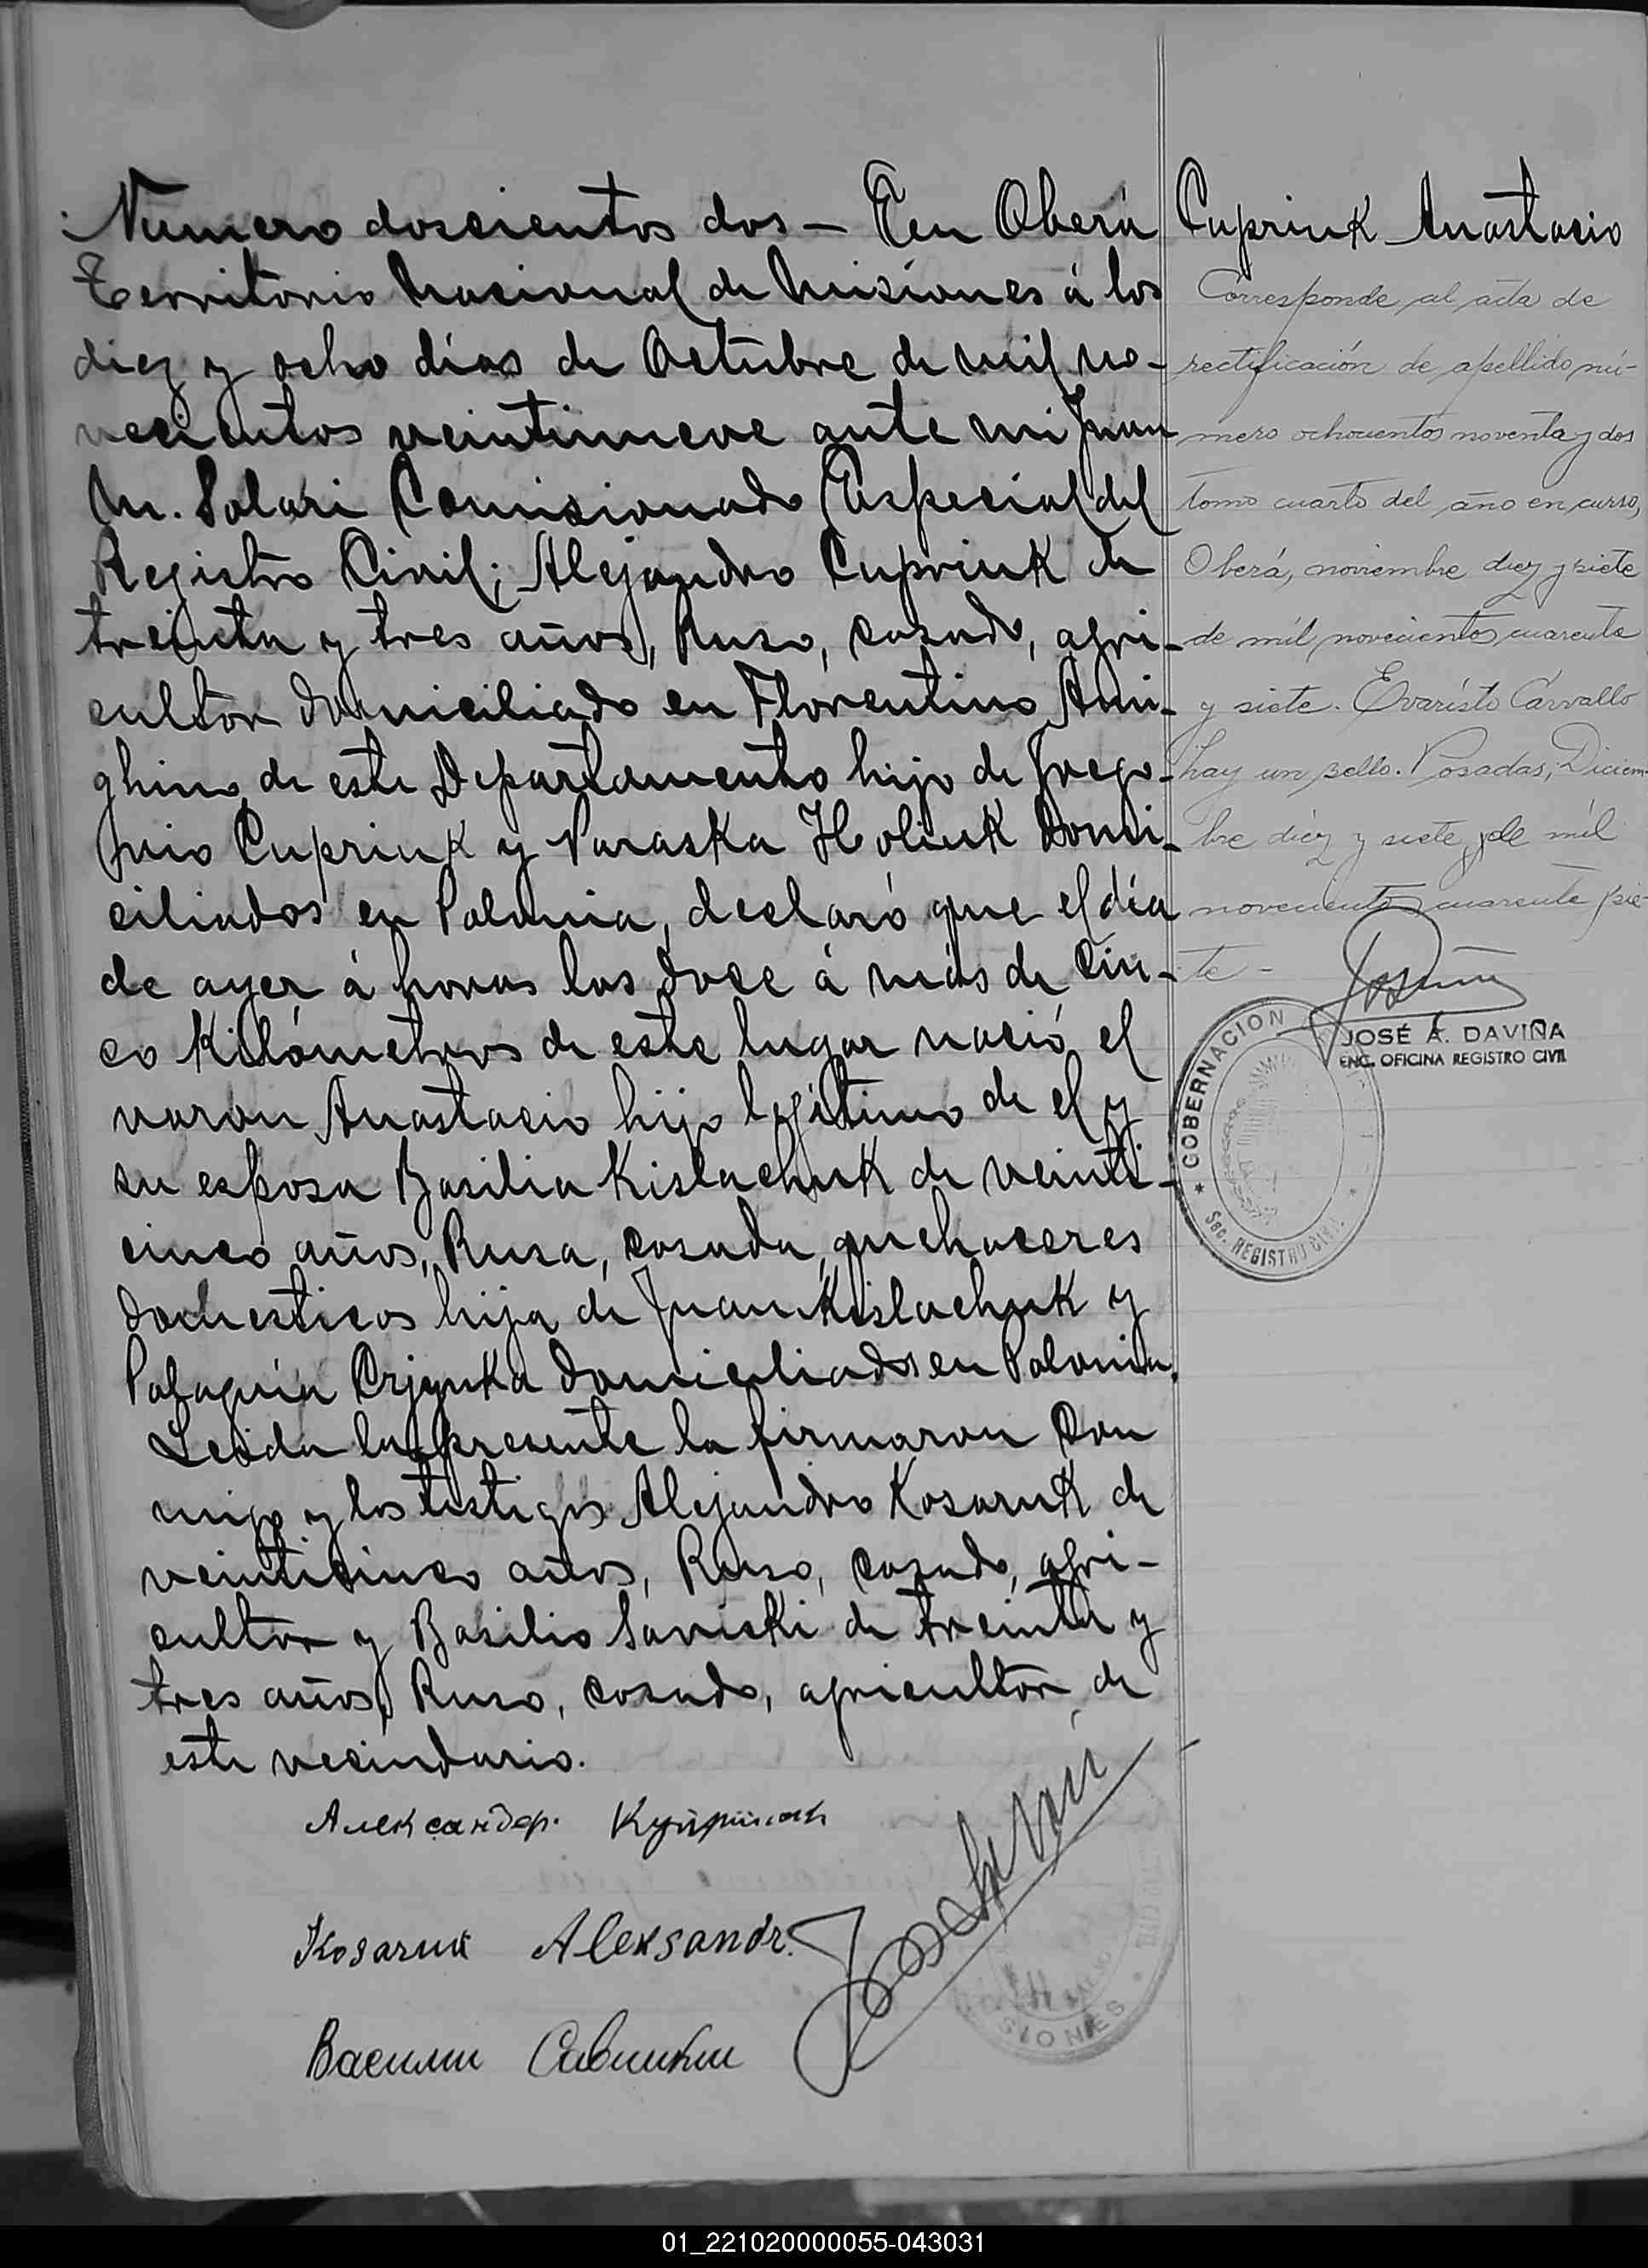 Número doscientos dos - En Oberá
Territorio Nacional de Misiones á los
diez y ocho días de Octubre de mil no-
vecientos veintinueve ante mi Juan
M. Solari Comisionado Especial del
Registro Civil; Alejandro Cupriuk de
treinta y tres años, Ruso, casado, agri-
cultor domiciliado en Florentino Ami-
ghino de este Departamento hijo de Grego-
rio Cupriuk y Paraska Holiuk domi-
ciliados en Polonia, declaró que el día
de ayer á horas las doce á más de cin-
co Kilómetros de este lugar nació el
varon Anastacio hijo legítimo de el y
su esposa Basilia Kislachuk de veinti-
cinco años, Rusa, casada, quehaceres
domesticos hija de Juan Kislachuk y
domiciliados en Polonia.
Leida la presente la firmaron con
migo y los testigos Alejandro Kosaruk de
veinticinco años, Ruso, casado, agri-
cultor y Basilio Saviski de treinta y
tres años, Ruso, casado, agricultor de
este vecindario.
Александер.
Kosaruk Aleksandr.
Василии
Cupriuk Anastacio
Corresponde al acta de
rectificación de apellido nú-
mero ochocientos noventa y dos
tomo cuarto del año en curso,
Oberá, noviembre diez y siete
de mil novecientos cuarenta
y siete. Evaristo Carvallo
hay un sello. Posadas, Diciem-
bre diez y siete de mil
novecientos cuarenta y sie-
te -
JOSÉ A. DAVIÑA
ENC. OFICINA REGISTRO CIVIL
GOBERNACION
SEC. REGISTRO CIVIL
SIONES
01_221020000055-043031